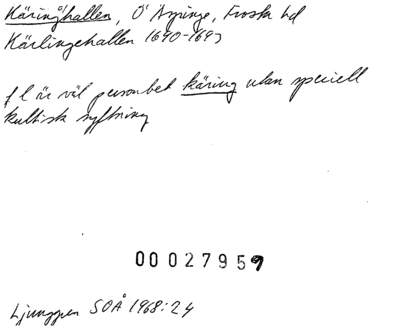 Käringhallen, Ö Asminge, Frosta hd
Kärlingehallen 1690-1693
f l är väl personbet käring utan speciell
kultisk syftning
00027959
Ljunggren SOÅ 1968:24